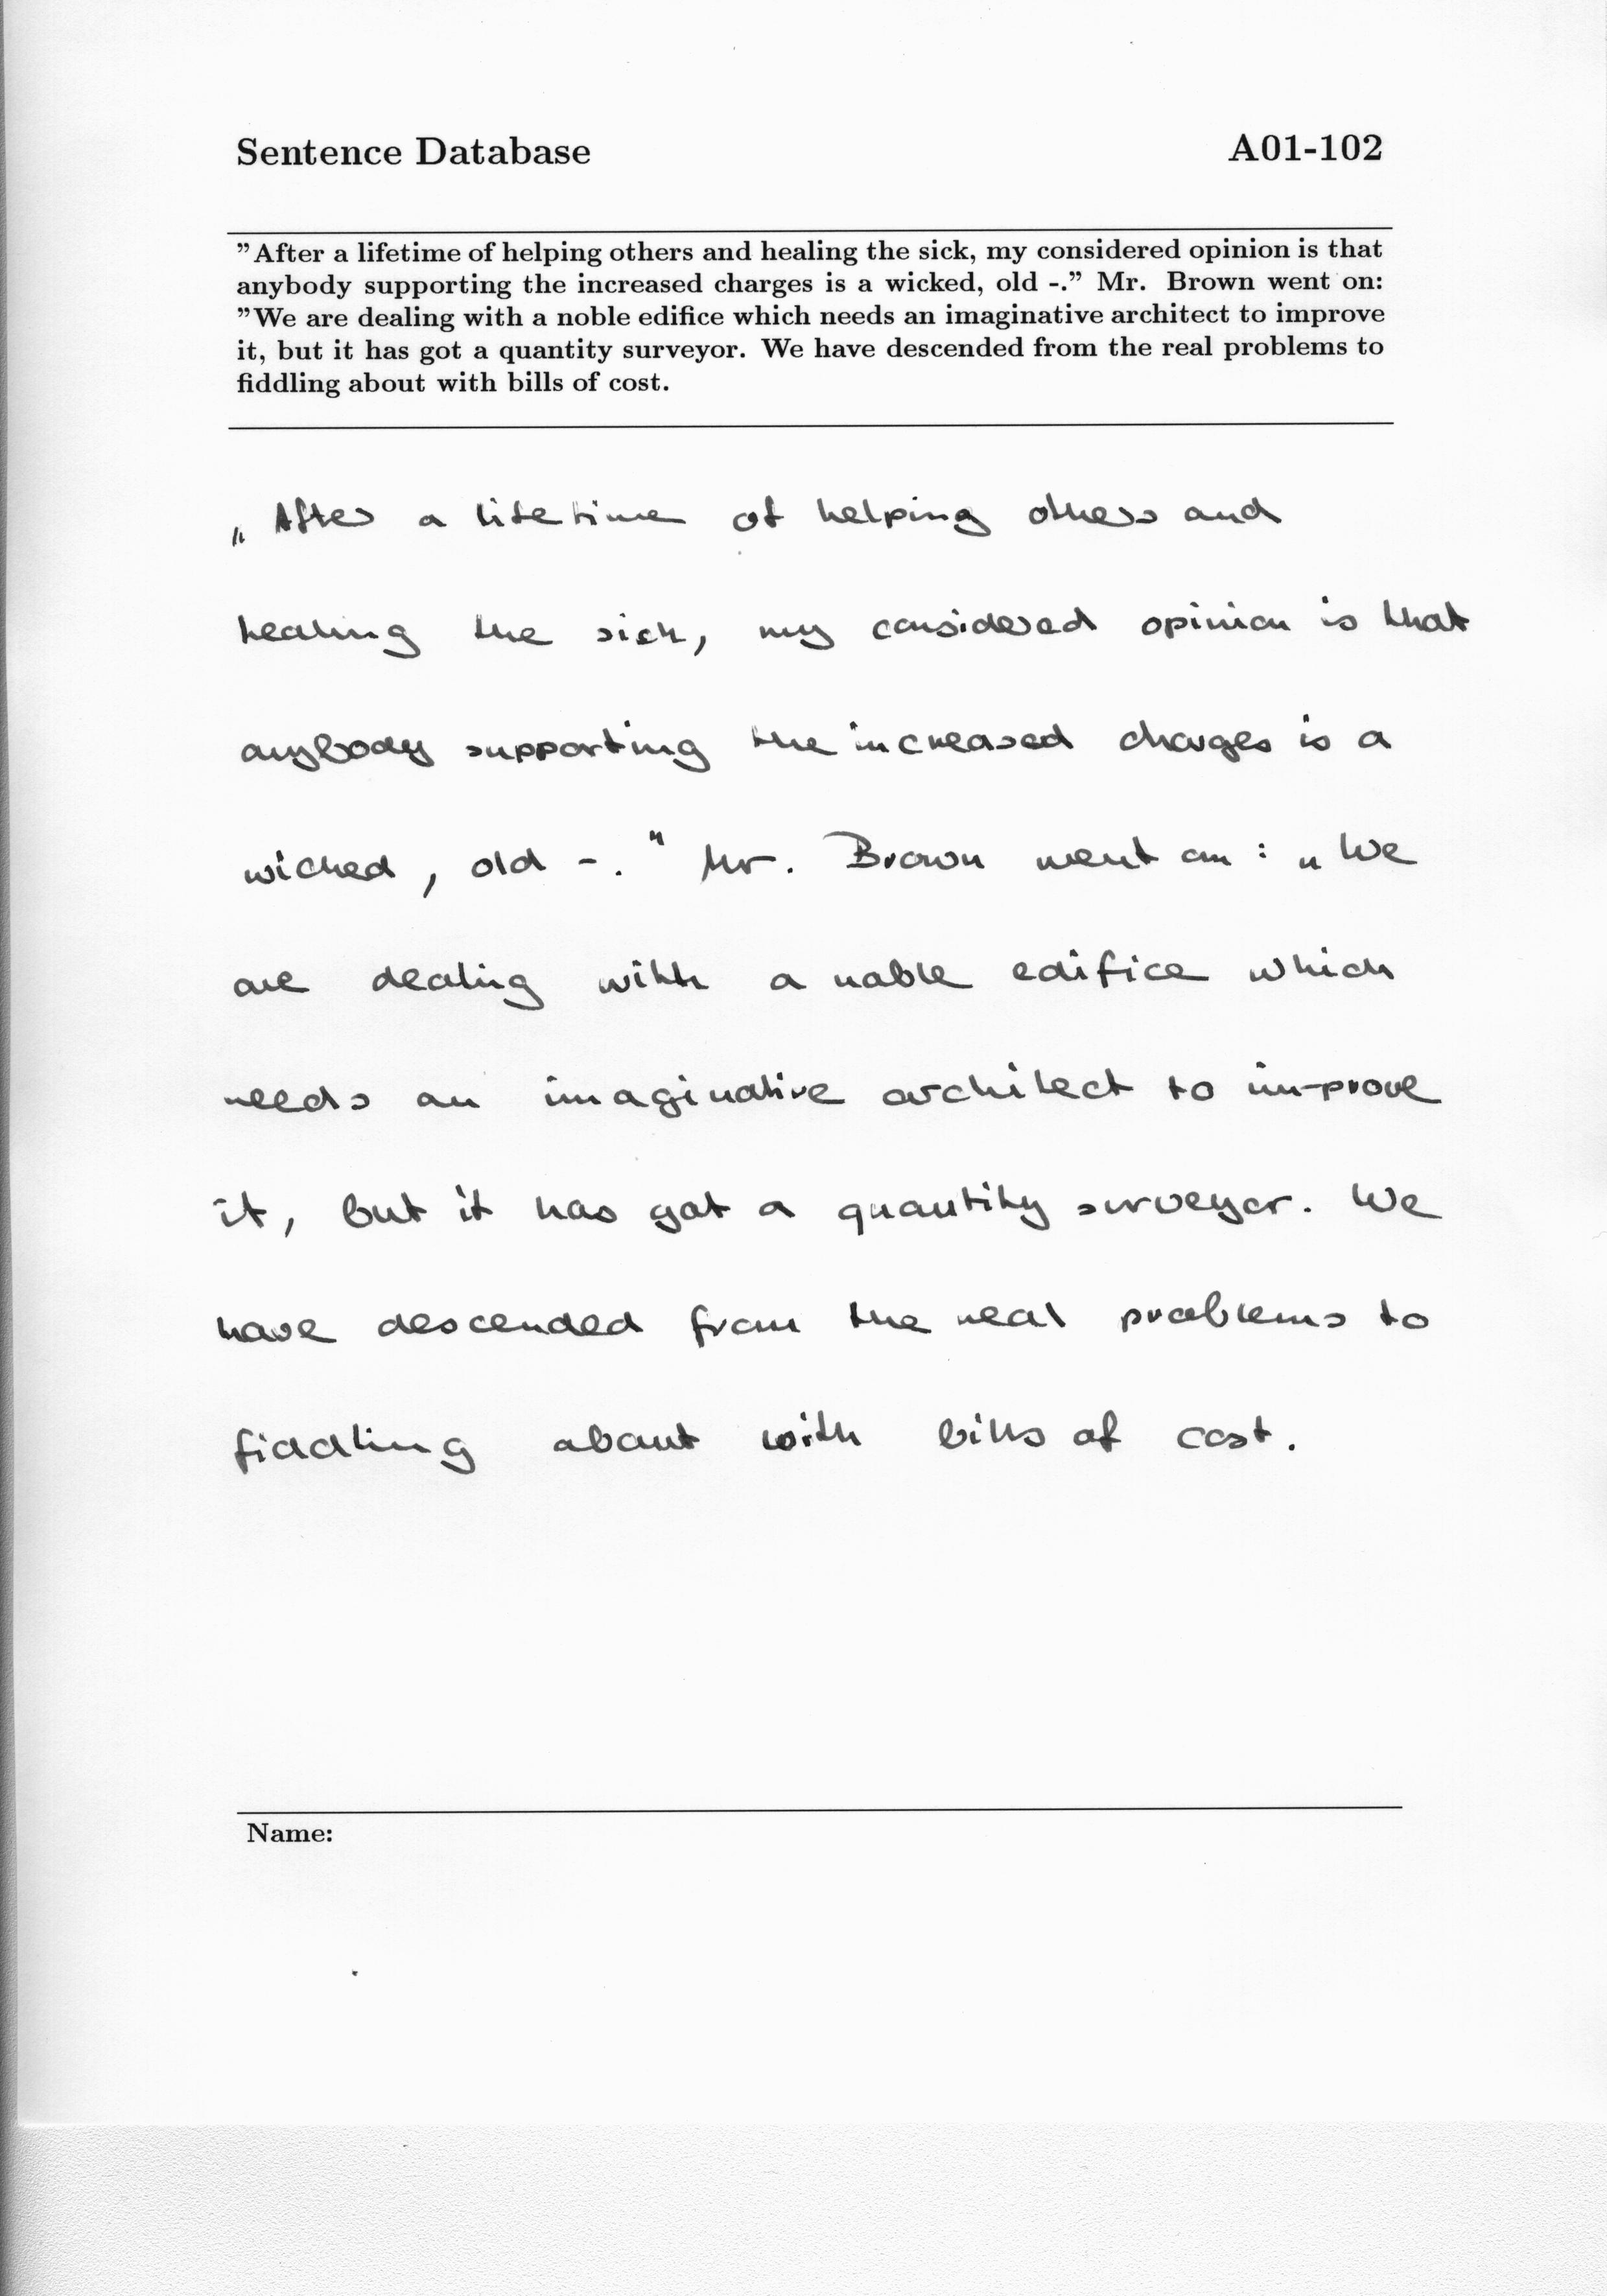 Sentence Database A01-102
"After a lifetime of helping others and healing the sick, my considered opinion is that
anybody supporting the increased charges is a wicked, old -." Mr. Brown went on:
"We are dealing with a noble edifice which needs an imaginative architect to improve
it, but it has got a quantity surveyor. We have descended from the real problems to
fiddling about with bills of cost.
„After a lifetime of helping others and
healing the sick, my considered opinion is that
anybody supporting the increased charges is a
wicked, old -." Mr. Brown went on: „We
are dealing with a noble edifice which
needs an imaginative architect to improve
it, but it has got a quantity surveyor. We
have descended from the real problems to
fiddling about with bills of cost.
Name: